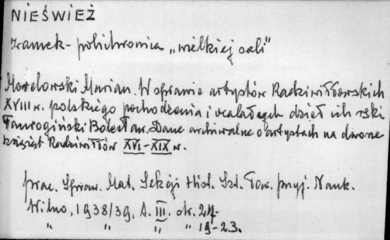 NIEŚWIEŻ
zamek - polichromia „wielkiej sali"
Morelowski Marian. W sprawie artystów Radziwiłłowskich
XVIII w. polskiego pochodzenia i ocalałych dzieł ich
Taurogiński Bolesław. Dane archiwalne o artystach na dworze
książąt Radziwiłłów XVI-XIX w.
prac. Spraw. Mat. Sekcji Hist. Szt. Tow. Przyj. Nauk.
Wilno, 1938/39, t. III. str. 24.
" " " " 19-23.